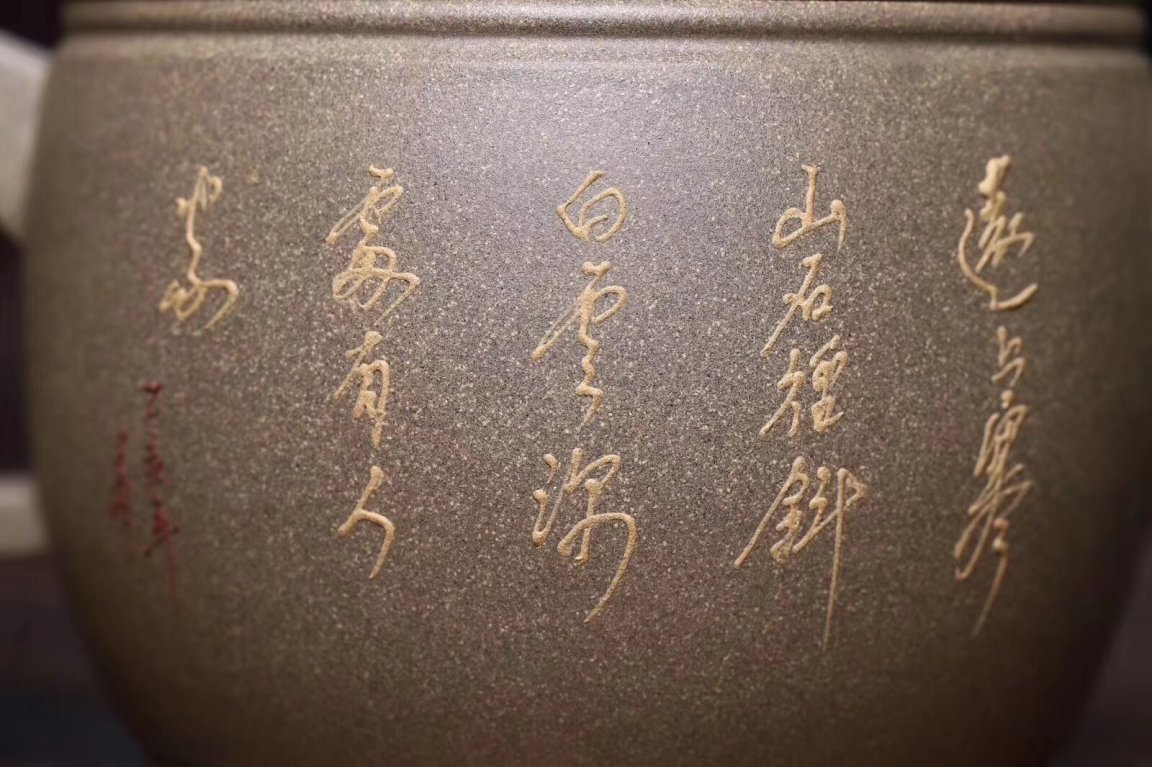 遠上寒
山石徑斜
白雲深
處有人
家